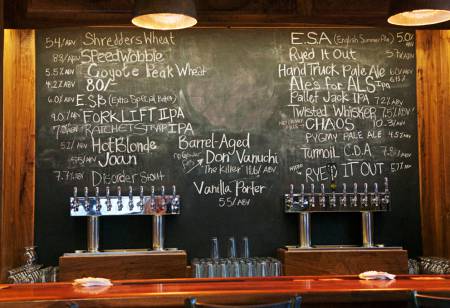 5.4%/ABV Shredders Wheat
8%/ABV SPEED Wobble
5.5%/ABV Coyote Peak Wheat
4.2%/ABV 80/-
6.0%/ABV ESB (Extra Special Bitter)
FORKLIFT IPA
7.0%/ABV RATCHETSTRAP IPA
5%/ABV Hot Blonde
5%/ABV Joan
7.7%/ABV Disorder Stout
Barrel-Aged
Don Vanuchi
"The Killer"
Vanilla Porter
5.5/ABV
E.S.A (English Summer Ale) 5.0%/ABV
Ryed It Out 5.7%/ABV
Hand Truck Pale Ale
Ales for ALS IPA
Pallet Jack IPA 7.2%/ABV
Twisted Whisker
CHAOS
PYGMY PALE ALE 4.5%/ABV
Turmoil C.D.A
RYED IT OUT 5.7%/ABV